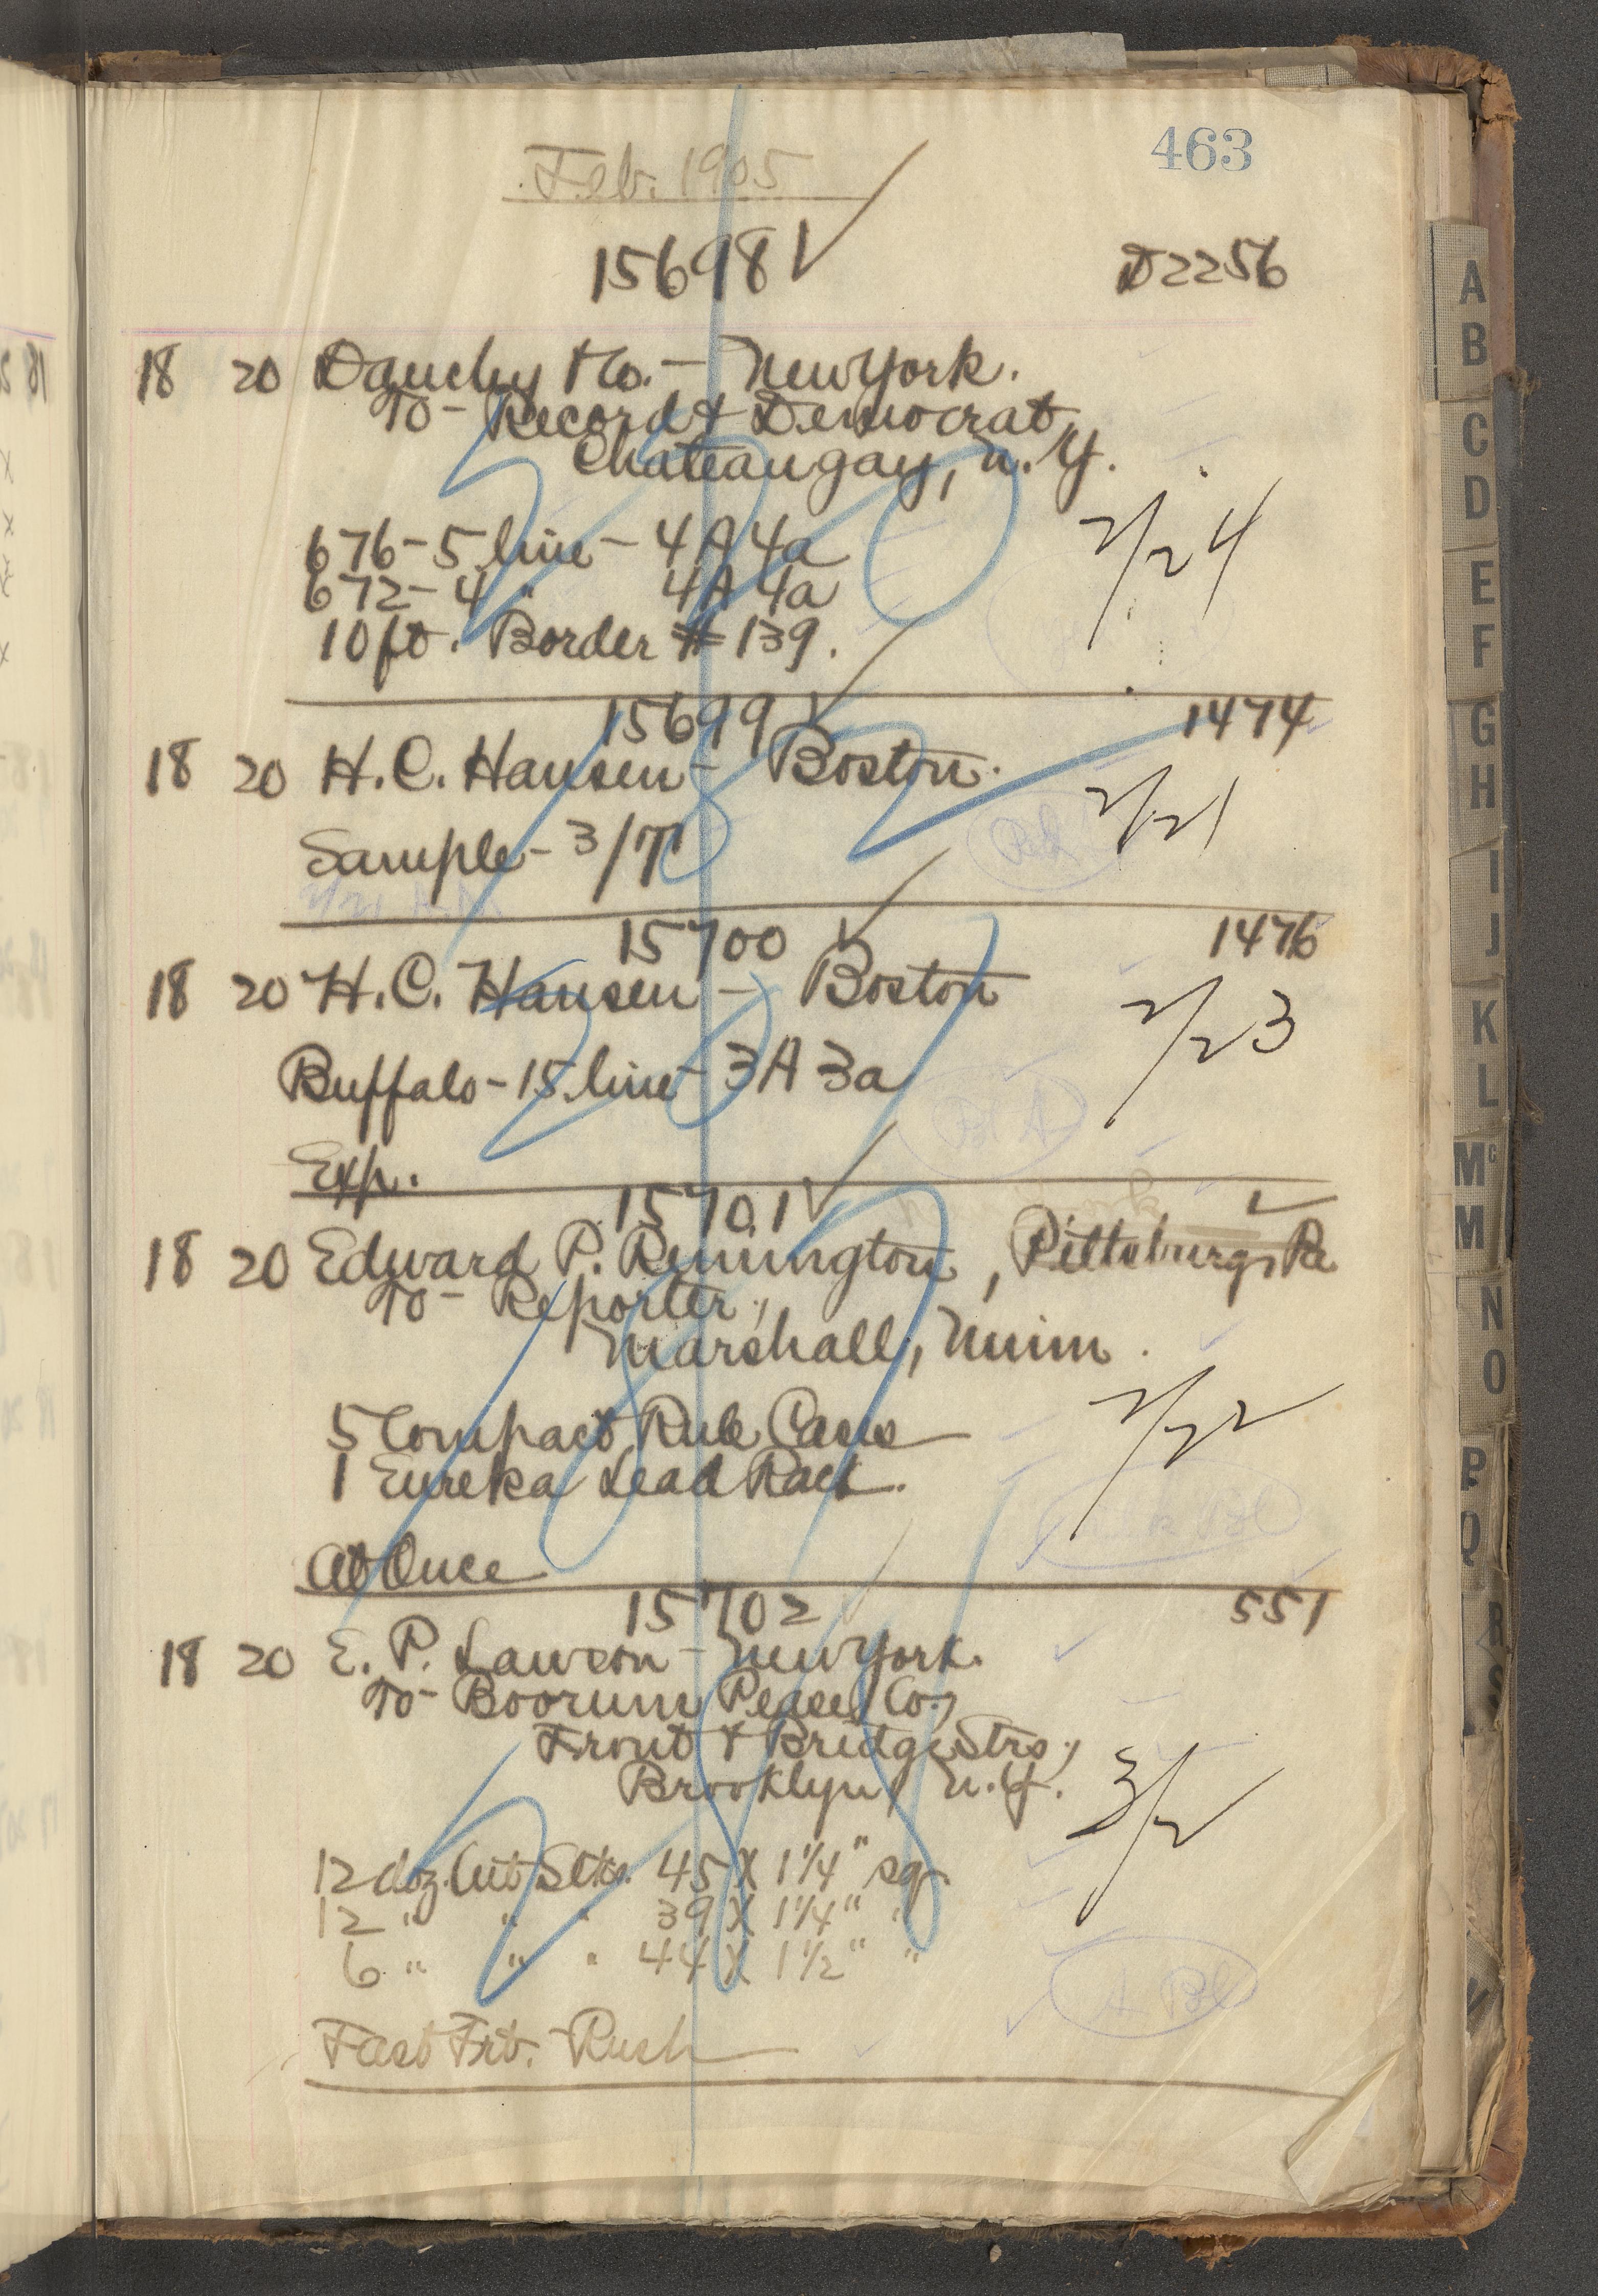 463
Feb. 1905
15698 D2256
18 20 Dauchy & Co. - New York.
To - Record & Democrat,
Chateaugay, N.Y.
676 - 5 line - 4A 4a
672 - 4 " 4A 4a
10 ft. Border # 139.
2/24
15699 1474
18 20 H.C. Hansen - Boston.
2/21
Sample - 3/71
15700 1476
18 20 H.C. Hansen - Boston
2/23
Buffalo - 15 line - 3A 3a
Exp.
15701
18 20 Edward P. Remington, Pittsburg, Pa
To - Reporter,
Marshall, Minn.
2/22
5 Compact Rule Cases
1 Eureka Lead Rack.
At Once
15702 551
18 20 E. P. Lawson - New York.
To - Boorum Pease Co.,
Front & Bridge Strs.,
Brooklyn, N.Y.
3/2
12 doz. Cut Stks. 45 X 1 1/4" sq.
12 " " " 39 X 1 1/4" "
6 " " " 44 X 1 1/2" "
Fast Frt. Rush
A
B
C
D
E
F
G
H
I
J
K
L
Mc
M
N
O
P
Q
R
S